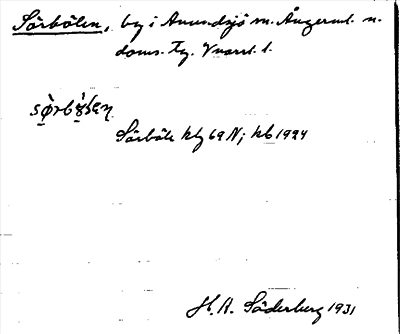 Sörbölen, by i Anundsjö sn. Ångerml. n.
doms. Tg. Vvarrl. 1.
sò̩rbö̩̀len
Sörböle hlg 69 N; kb 1924
H. A. Söderberg 1931